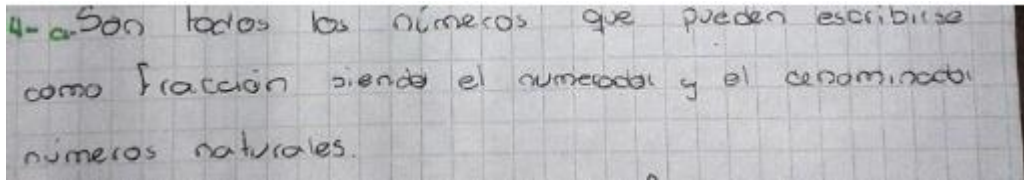 4-a-Son todos los números que pueden escribirse
como fracción siendo el numerador y el denominador
números naturales.